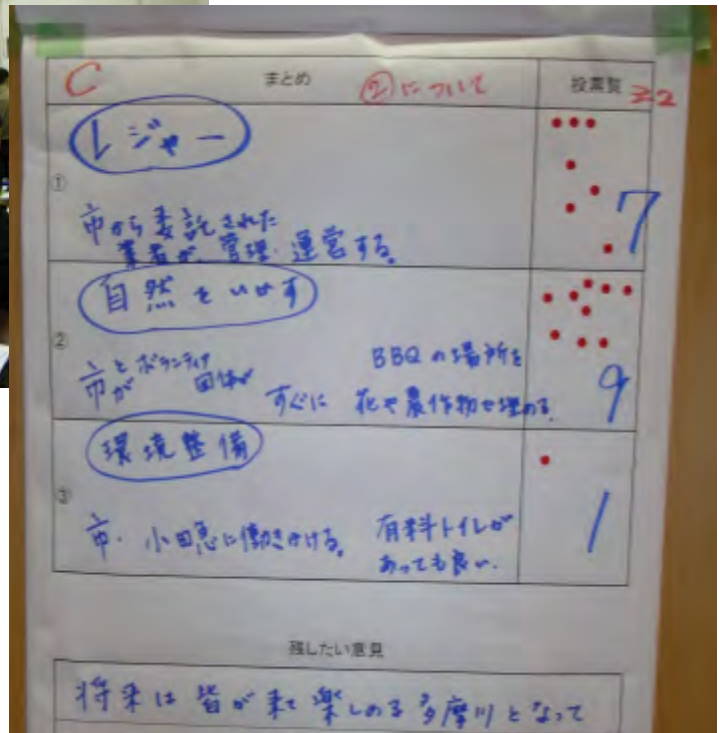 C まとめ ②について 投票覧 32
① レジャー
市から委託された
業者が、管理・運営する。
7
② 自然をいかす
市とボランティア団体が
BBQの場所を
すぐに 花や農作物で埋める。
9
③ 環境整備
市・小田急に働きかける。
有料トイレが
あっても良い。
1
残したい意見
将来は皆が来て楽しめる多摩川となって